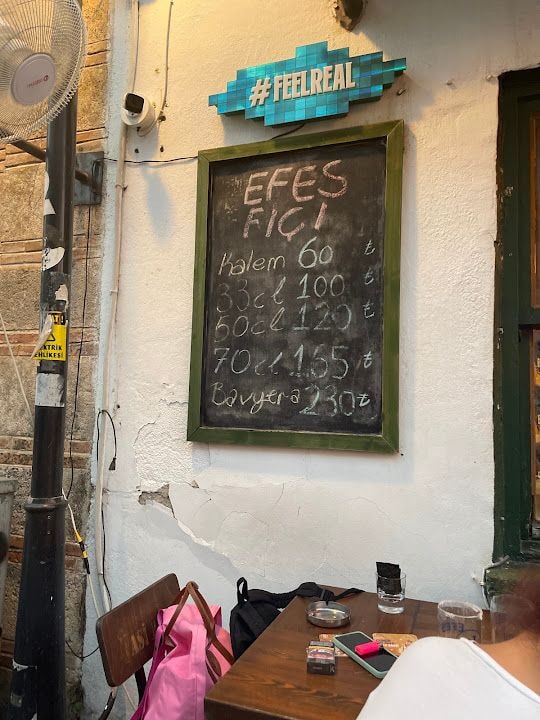 #FEELREAL
EFES
FIÇI
Kalem 60 ₺
33cl 100 ₺
50cl 120 ₺
70cl 165 ₺
Bavyera 230 ₺